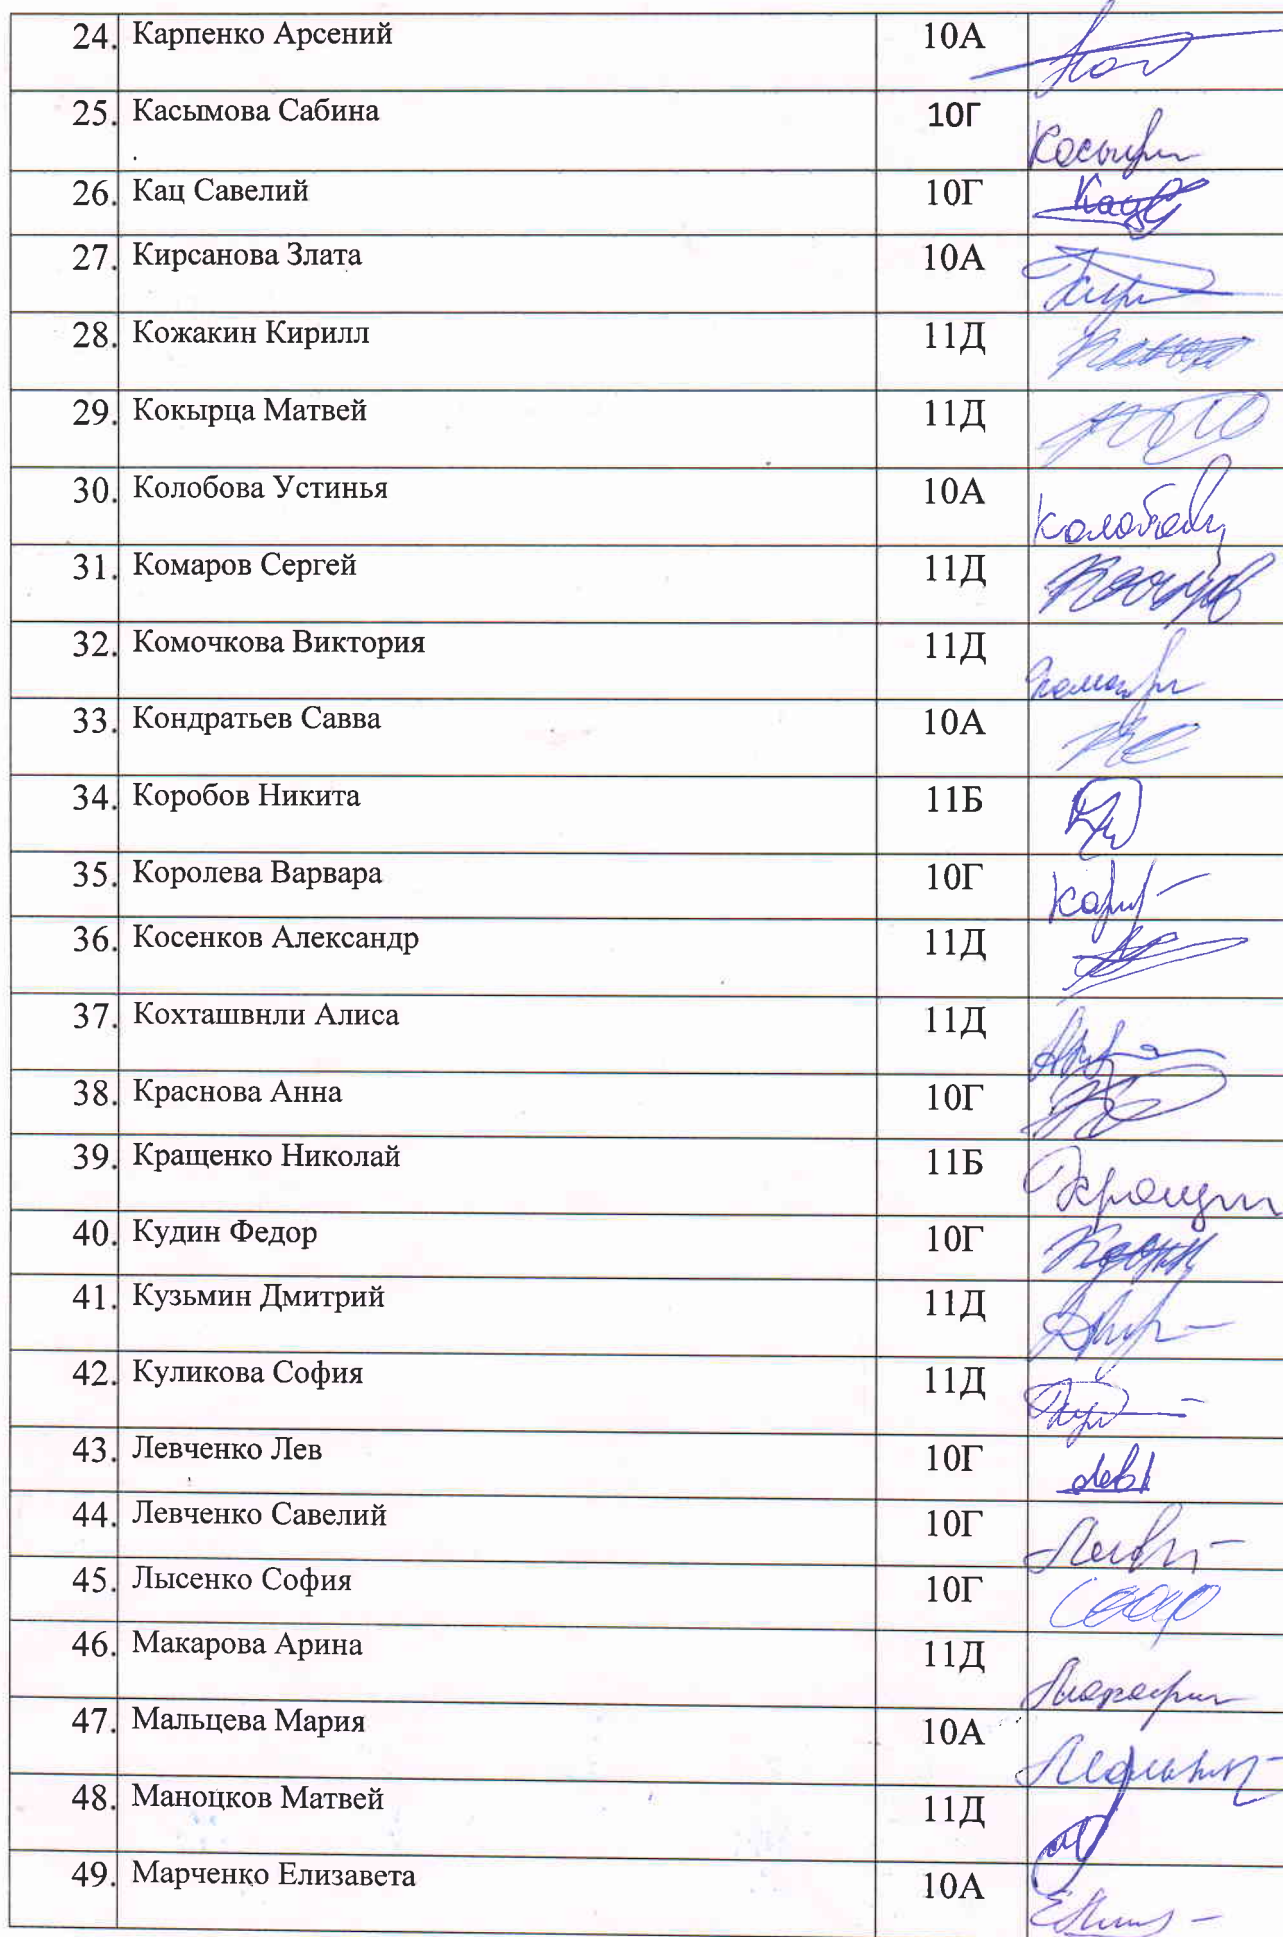 24. Карпенко Арсений 10А
25. Касымова Сабина 10Г
26. Кац Савелий 10Г
27. Кирсанова Злата 10А
28. Кожакин Кирилл 11Д
29. Кокырца Матвей 11Д
30. Колобова Устинья 10А
31. Комаров Сергей 11Д
32. Комочкова Виктория 11Д
33. Кондратьев Савва 10А
34. Коробов Никита 11Б
35. Королева Варвара 10Г
36. Косенков Александр 11Д
37. Кохташвнли Алиса 11Д
38. Краснова Анна 10Г
39. Кращенко Николай 11Б
40. Кудин Федор 10Г
41. Кузьмин Дмитрий 11Д
42. Куликова София 11Д
43. Левченко Лев 10Г
44. Левченко Савелий 10Г
45. Лысенко София 10Г
46. Макарова Арина 11Д
47. Мальцева Мария 10А
48. Маноцков Матвей 11Д
49. Марченко Елизавета 10А